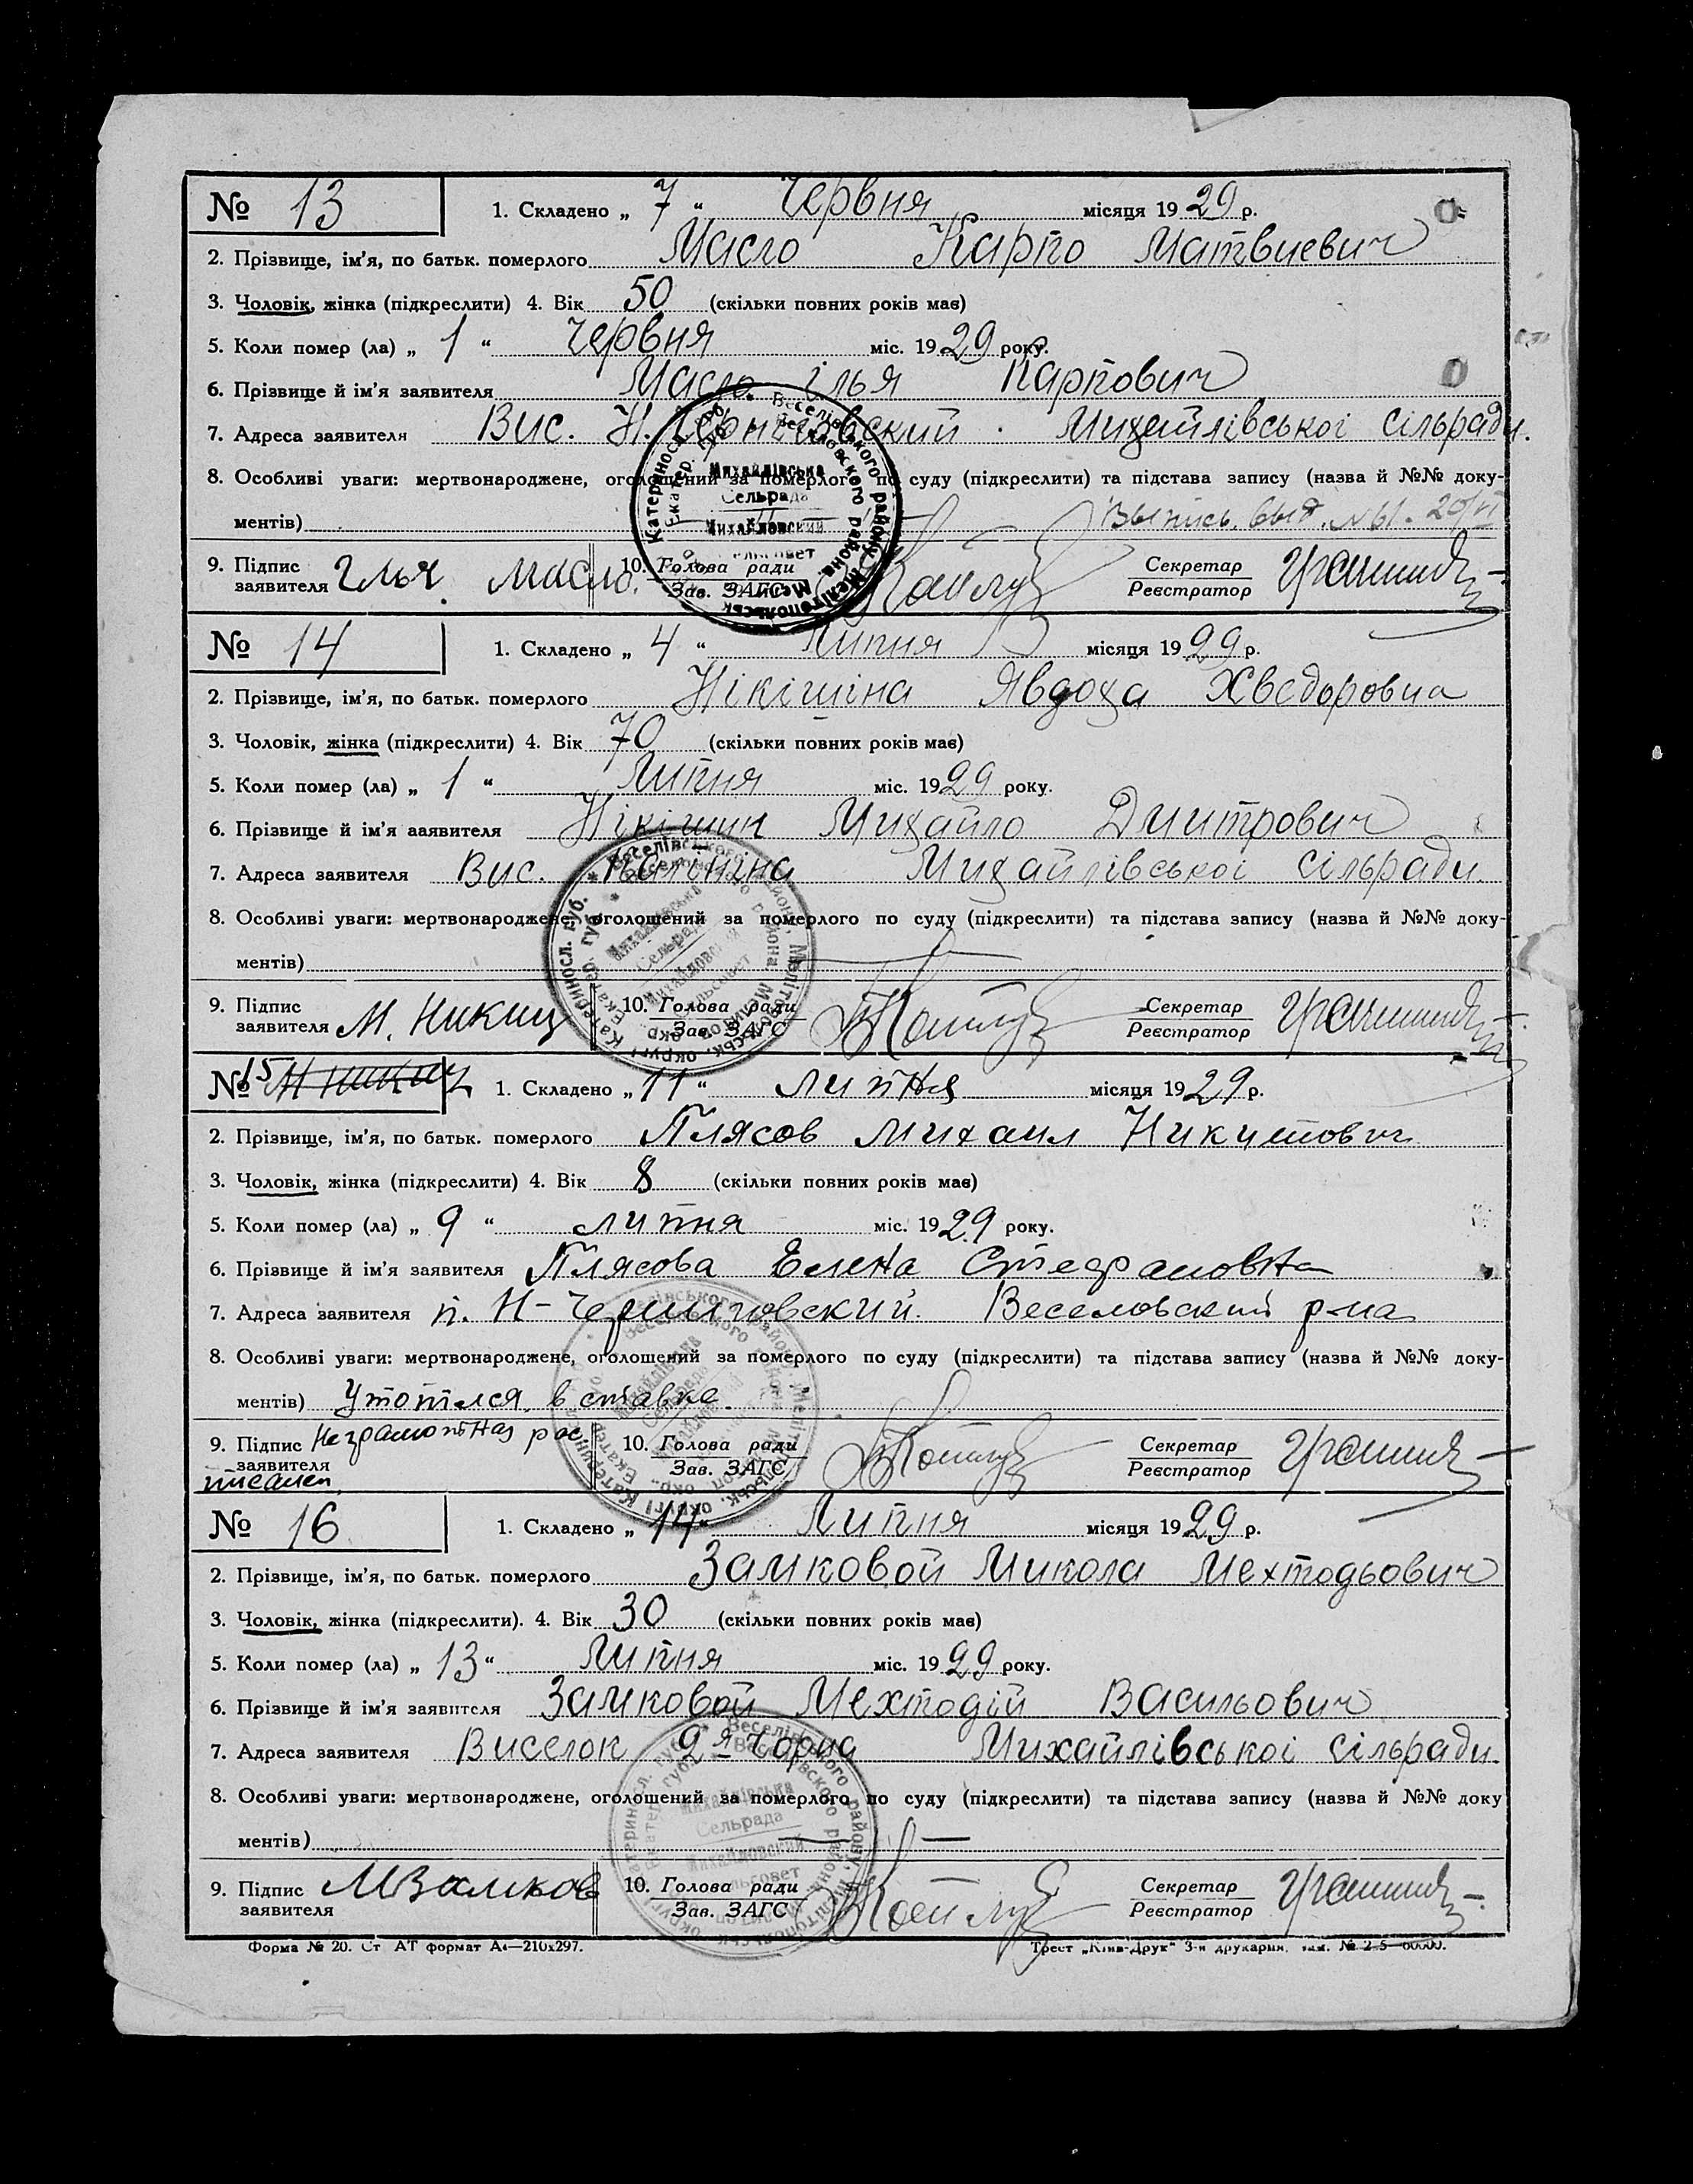 № 13 1. Складено „ 7 “ Червня місяця 1929 р.
2. Прізвище, ім'я, по батьк. померлого Масло Карпо Матвиевич
3. Чоловік, жінка (підкреслити) 4. Вік 50 (скільки повних років має)
5. Коли помер (ла) „ 1 “ Червня міс. 1929 року.
6. Прізвище й ім'я заявителя Масло ілья Карпович
7. Адреса заявителя Вис. Н. Чернігівский Михайлівської сільради.
8. Особливі уваги: мертвонароджене, оголошений за померлого по суду (підкреслити) та підстава запису (назва й №№ доку-
ментів) Выпись. выд. № 61. 20/VI
9. Підпис заявителя Илья Масло. 10. Голова ради Зав. ЗАГС Секретар Реєстратор
№ 14 1. Складено „ 4 “ Липня місяця 1929 р.
2. Прізвище, ім'я, по батьк. померлого Нікішіна Явдоха Хведоровна
3. Чоловік, жінка (підкреслити) 4. Вік 70 (скільки повних років має)
5. Коли помер (ла) „ 1 “ Липня міс. 1929 року.
6. Прізвище й ім'я заявителя Нікішин Михайло Дмитрович
7. Адреса заявителя Вис. Калініна Михайлівської сільради.
8. Особливі уваги: мертвонароджене, оголошений за померлого по суду (підкреслити) та підстава запису (назва й №№ доку-
ментів)
9. Підпис заявителя М. Никиш 10. Голова ради Зав. ЗАГС Секретар Реєстратор
№ 15 1. Складено „ 11 “ липня місяця 1929 р.
2. Прізвище, ім'я, по батьк. померлого Плясов Михаил Никитович
3. Чоловік, жінка (підкреслити) 4. Вік 8 (скільки повних років має)
5. Коли помер (ла) „ 9 “ липня міс. 1929 року.
6. Прізвище й ім'я заявителя Плясова Елена Стефановна
7. Адреса заявителя п. Н-Черниговский. Веселовский р-на
8. Особливі уваги: мертвонароджене, оголошений за померлого по суду (підкреслити) та підстава запису (назва й №№ доку-
ментів) Утопился в ставке.
9. Підпис заявителя Неграмотная рос 10. Голова ради Зав. ЗАГС Секретар Реєстратор
№ 16 1. Складено „ 14 “ Липня місяця 1929 р.
2. Прізвище, ім'я, по батьк. померлого Замковой Микола Мехтодьович
3. Чоловік, жінка (підкреслити). 4. Вік 30 (скільки повних років має)
5. Коли помер (ла) „ 13 “ Липня міс. 1929 року.
6. Прізвище й ім'я заявителя Замковой Мехтодій Васильович
7. Адреса заявителя Виселок 2я Чорна Михайлівської сільради.
8. Особливі уваги: мертвонароджене, оголошений за померлого по суду (підкреслити) та підстава запису (назва й №№ доку
ментів)
9. Підпис заявителя МЗамков 10. Голова ради Зав. ЗАГС Секретар Реєстратор
Форма № 20. Ст АТ формат А4—210х297. Трест „Київ-Друк“ 3-я друкарня,